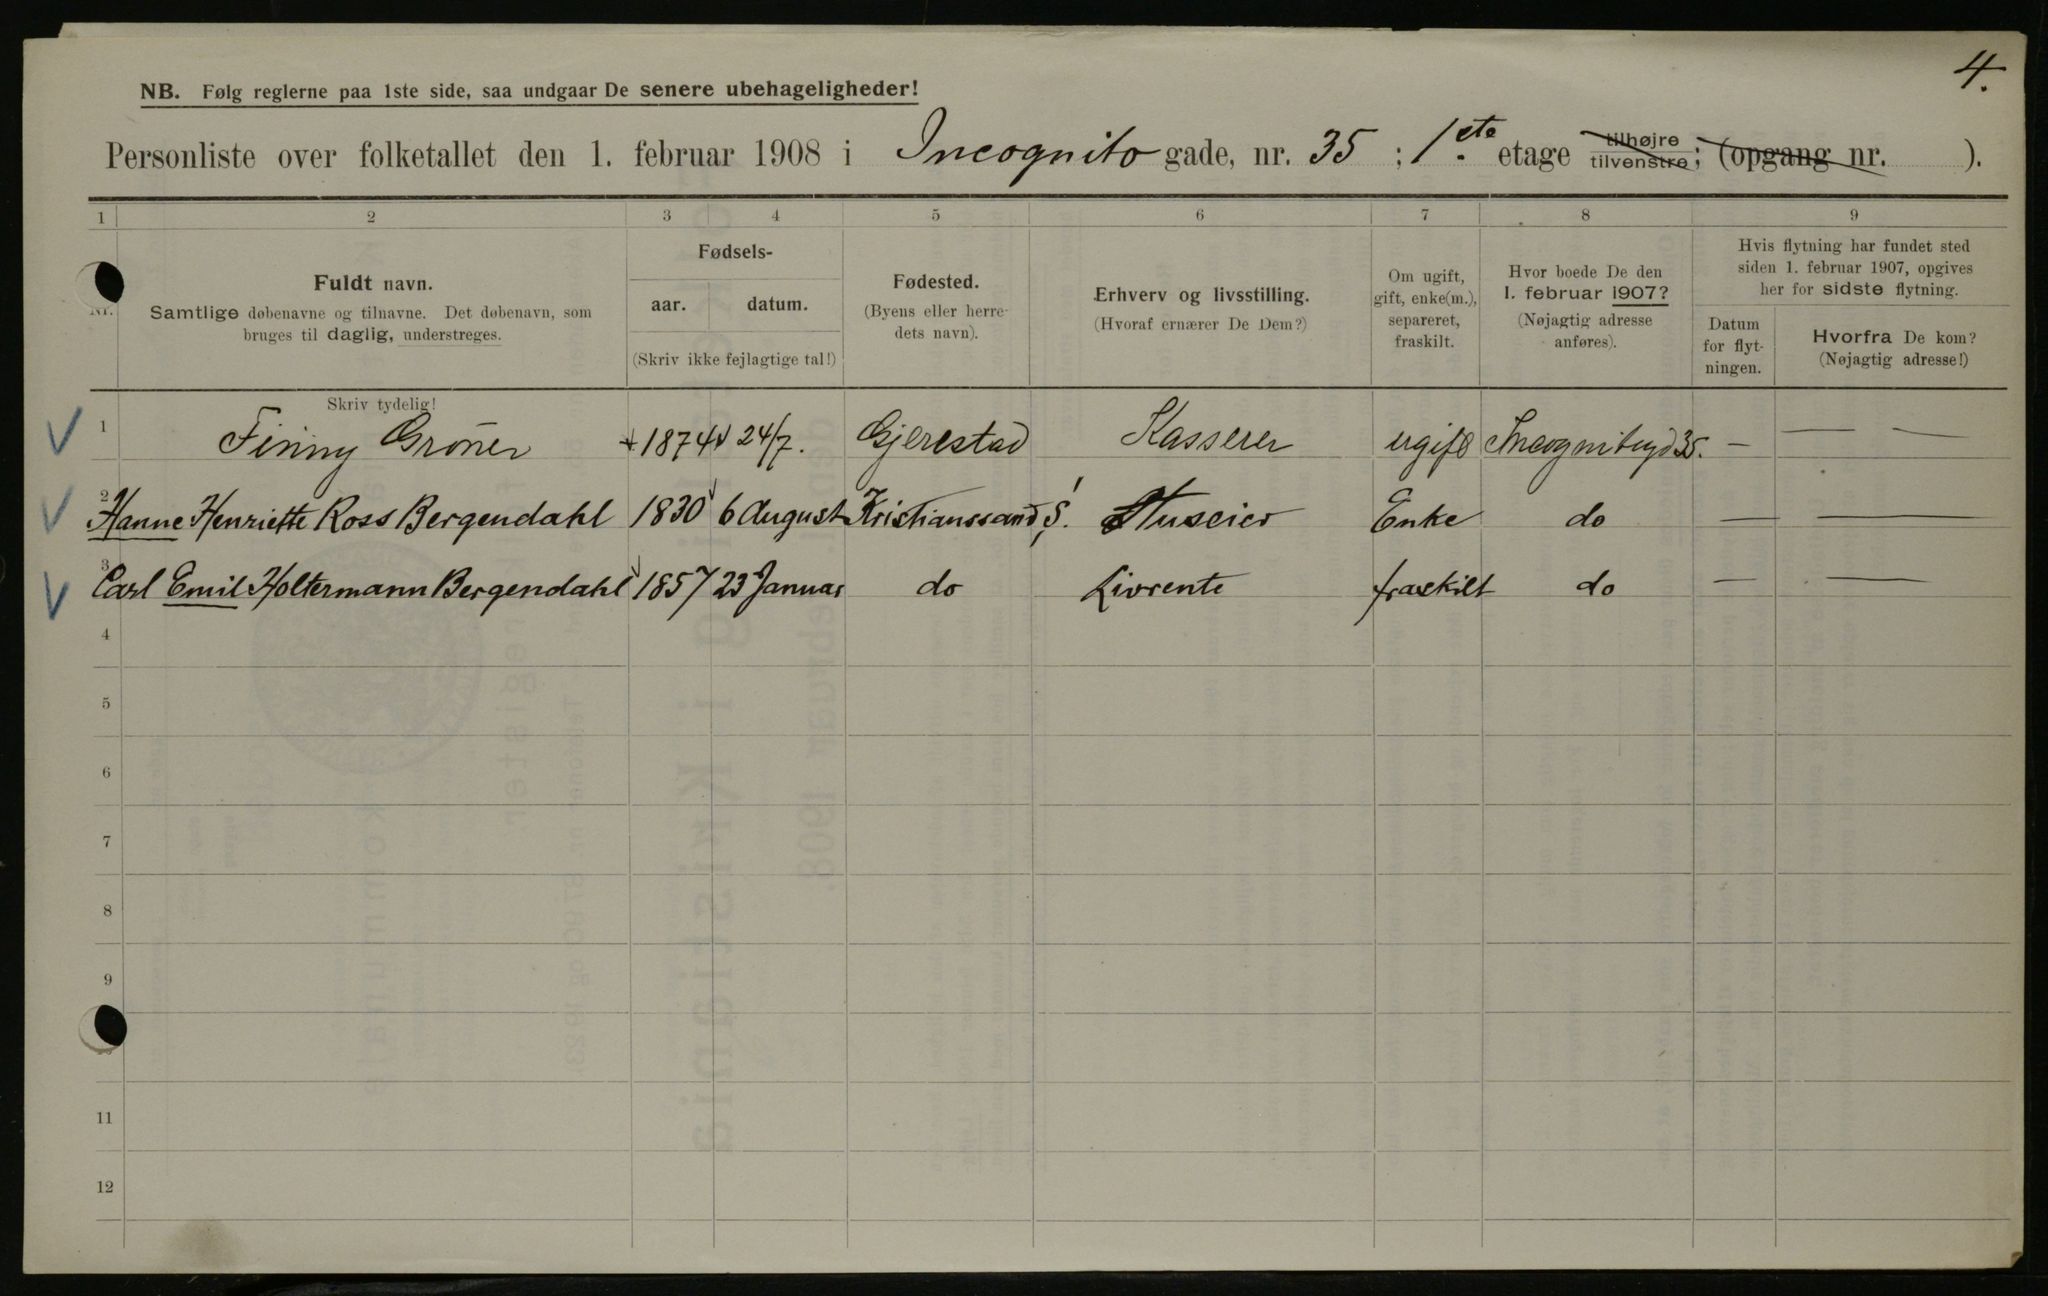 4.
NB. Følg reglerne paa 1ste side, saa undgaar De senere ubehageligheder!
Personliste over folketallet den 1. februar 1908 i Incognito gade, nr. 35 ; 1.ste etage tilhøjre tilvenstre; (opgang nr. ).
1 2 3 4 5 6 7 8 9
Nr.
Fuldt navn.
Samtlige døbenavne og tilnavne. Det døbenavn, som
bruges til daglig, understreges.
Skriv tydelig!
Fødsels-
aar. datum.
(Skriv ikke fejlagtige tal!)
Fødested.
(Byens eller herre-
dets navn).
Erhverv og livsstilling.
(Hvoraf ernærer De Dem?)
Om ugift,
gift, enke(m.),
separeret,
fraskilt.
Hvor boede De den
1. februar 1907?
(Nøjagtig adresse
anføres).
Hvis flytning har fundet sted
siden 1. februar 1907, opgives
her for sidste flytning.
Datum
for flyt-
ningen.
Hvorfra De kom?
(Nøjagtig adresse!)
1 Finny Grøner 1874 24/7. Gjerestad Kasserer ugift Incognitogd 35. — — —
2 Hanne Henriette Ross Bergendahl 1830 6 August Kristianssand S. Huseier Enke do — —
3 Carl Emil Holtermann Bergendahl 1857 23 Januar do Livrente fraskilt do — —
4
5
6
7
8
9
11
12